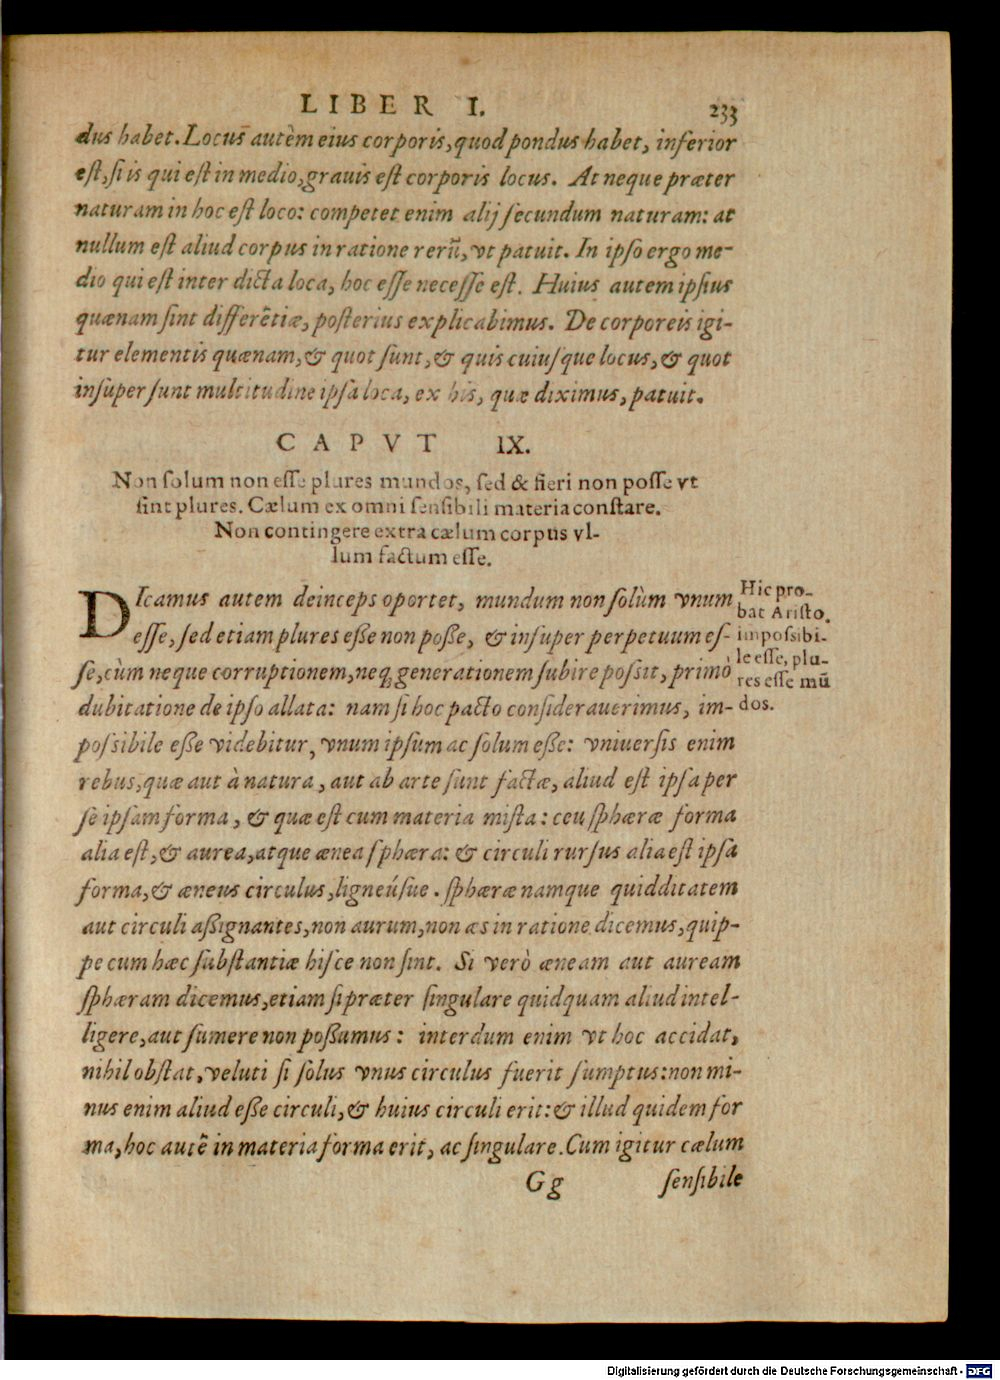 LIBER I. 233
dus habet. Locus autèm eius corporis, quod pondus habet, inferior
est, si is qui est in medio, grauis est corporis locus. At neque præter
naturam in hoc est loco: competet enim alij secundum naturam: at
nullum est aliud corpus in ratione rerũ, vt patuit. In ipso ergo me-
dio qui est inter dicta loca, hoc esse necesse est. Huius autem ipsius
quænam sint differẽtiæ, posterius explicabimus. De corporeis igi-
tur elementis quænam, & quot sunt, & quis cuiusque locus, & quot
insuper sunt multitudine ipsa loca, ex his, quæ diximus, patuit.
CAPVT IX.
Non solum non esse plures mundos, sed & fieri non posse vt
sint plures. Cælum ex omni sensibili materia constare.
Non contingere extra cælum corpus vl-
lum factum esse.
DIcamus autem deinceps oportet, mundum non solùm vnum
esse, sed etiam plures eße non poße, & insuper perpetuum es-
se, cùm neque corruptionem, neq; generationem subire possit, primò
dubitatione de ipso allata: nam si hoc pacto considerauerimus, im-
possibile eße videbitur, vnum ipsum ac solum eße: vniuersis enim
rebus, quæ aut à natura, aut ab arte sunt factæ, aliud est ipsa per
se ipsam forma, & quæ est cum materia mista: ceu sphæræ forma
alia est, & aurea, atque ænea sphæra: & circuli rursus alia est ipsa
forma, & æneus circulus, ligneúsue. sphæræ namque quidditatem
aut circuli aßignantes, non aurum, non æs in ratione dicemus, quip-
pe cum hæc substantiæ hisce non sint. Si verò æneam aut auream
sphæram dicemus, etiam si præter singulare quidquam aliud intel-
ligere, aut sumere non poßumus: interdum enim vt hoc accidat,
nihil obstat, veluti si solus vnus circulus fuerit sumptus: non mi-
nus enim aliud eße circuli, & huius circuli erit: & illud quidem for
ma, hoc autẽ in materia forma erit, ac singulare. Cum igitur cælum
Gg sensibile
Hic pro-
bat Aristo.
impossibi-
le esse, plu-
res esse mũ
dos.
Digitalisierung gefördert durch die Deutsche Forschungsgemeinschaft - DFG